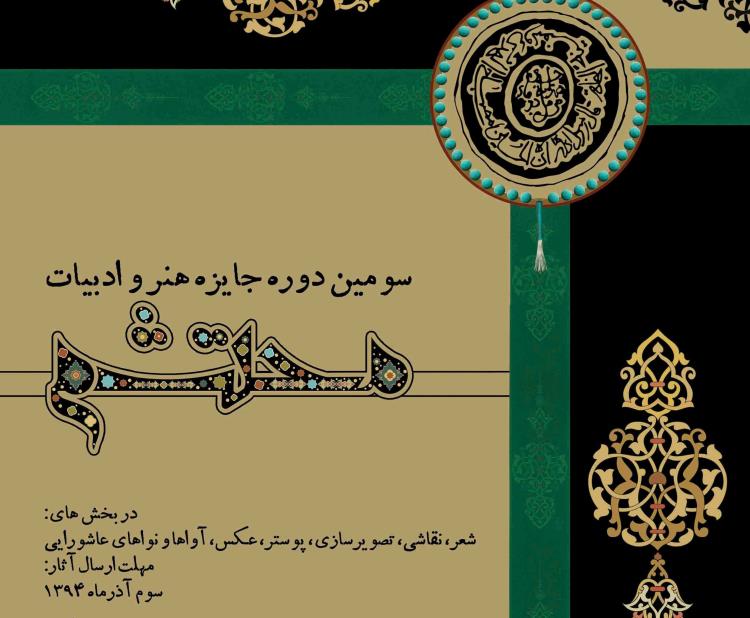 سومین دوره جایزه هنر و ادبیات
محتشم
در بخش های:
شعر، نقاشی، تصویرسازی، پوستر، عکس، آواها و نواهای عاشورایی
مهلت ارسال آثار:
سوم آذرماه ۱۳۹۴